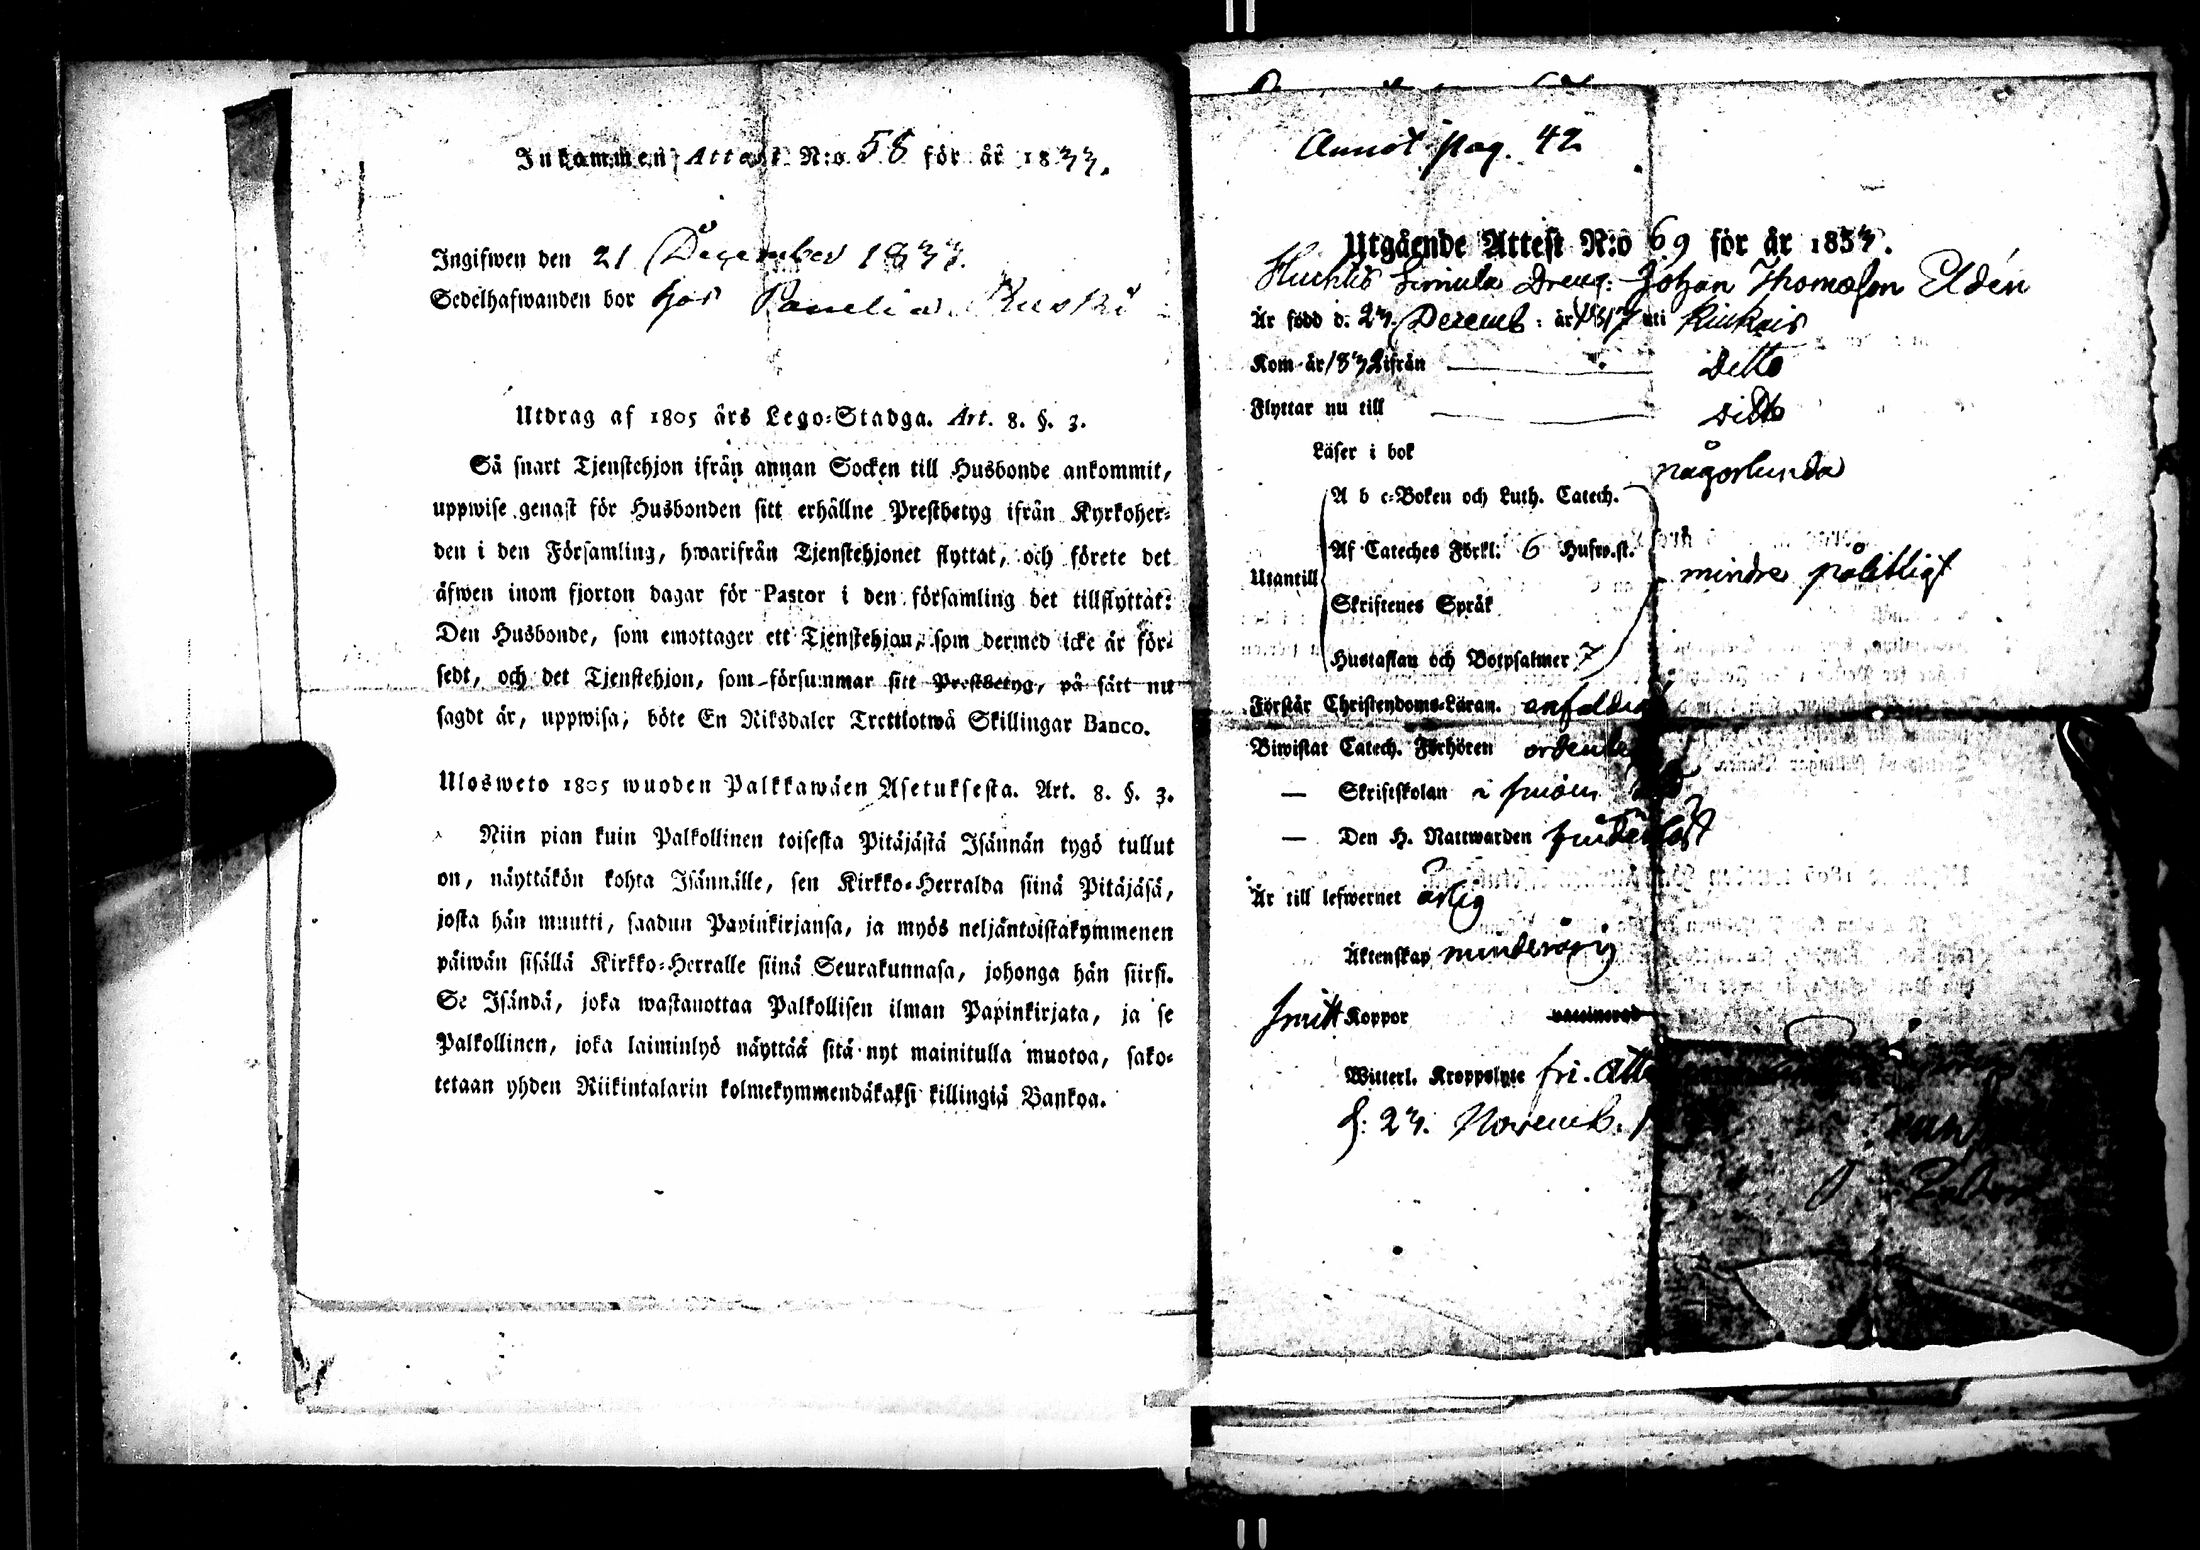 Inkommen Attest N:o 58 för år 1833.
Ingifwen den 21 December 1833.
Sedelhafwanden bor hos Panelia Ruski
Utdrag af 1805 års Lego-Stadga. Art. 8. §. 3.
Så snart Tjenstehjon ifrån annan Socken till Husbonde ankommit,
uppwise genast för Husbonden sitt erhållne Prestbetyg ifrån Kyrkoher-
den i den Församling, hwarifrån Tjenstehjonet flyttat, och förete det
äfwen inom fjorton dagar för Pastor i den församling det tillflyttat:
Den Husbonde, som emottager ett Tjenstehjon, som dermed icke är för-
sedt, och det Tjenstehjon, som försummar sitt Prestbetyg, på sätt nu
sagdt är, uppwisa, böte En Riksdaler Trettiotwå Skillingar Banco.
Ulosweto 1805 wuoden Palkkawäen Asetuksesta. Art. 8. §. 3.
Niin pian kuin Palkollinen toisesta Pitäjästä Isännän tygö tullut
on, näyttäkön kohta Isännälle, sen Kirkko-Herralda siinä Pitäjäsä,
josta hän muutti, saadun Papinkirjansa, ja myös neljäntoistakymmenen
päiwän sisällä Kirkko-Herralle siinä Seurakunnasa, johonga hän siirsi.
Se Isändä, joka wastauottaa Palkollisen ilman Papinkirjata, ja se
Palkollinen, joka laiminlyö näyttää sitä nyt mainitulla muotoa, sako-
tetaan yhden Riikintalarin kolmekymmendäkaksi killingiä Bankoa.
Annot pag. 42
Utgående Attest N:o 69 för år 1833.
Dreng: Johan Thomasson Eldén
Är född d. 23. Decemb: år 1817 uti Kiukais
Kom år 1832 ifrån Ditto
Flyttar nu till Ditto
Läser i bok någorlunda
A b c-Boken och Luth. Catech.
Af Cateches Förkl: 6 Hufw.st.
Utantill mindre pålitligt
Skriftenes Språk
Hustaflan och Botpsalmer 7
Förstår Christendoms-Läran. enfaldigt
Biwistat Catech. Förhören
— Skriftskolan
— Den H. Nattwarden
Är till lefwernet ärlig
Äktenskap minderårig
haft Koppor vaccinerad
Witterl. Kroppslyte fri.
d: 23. Novemb.